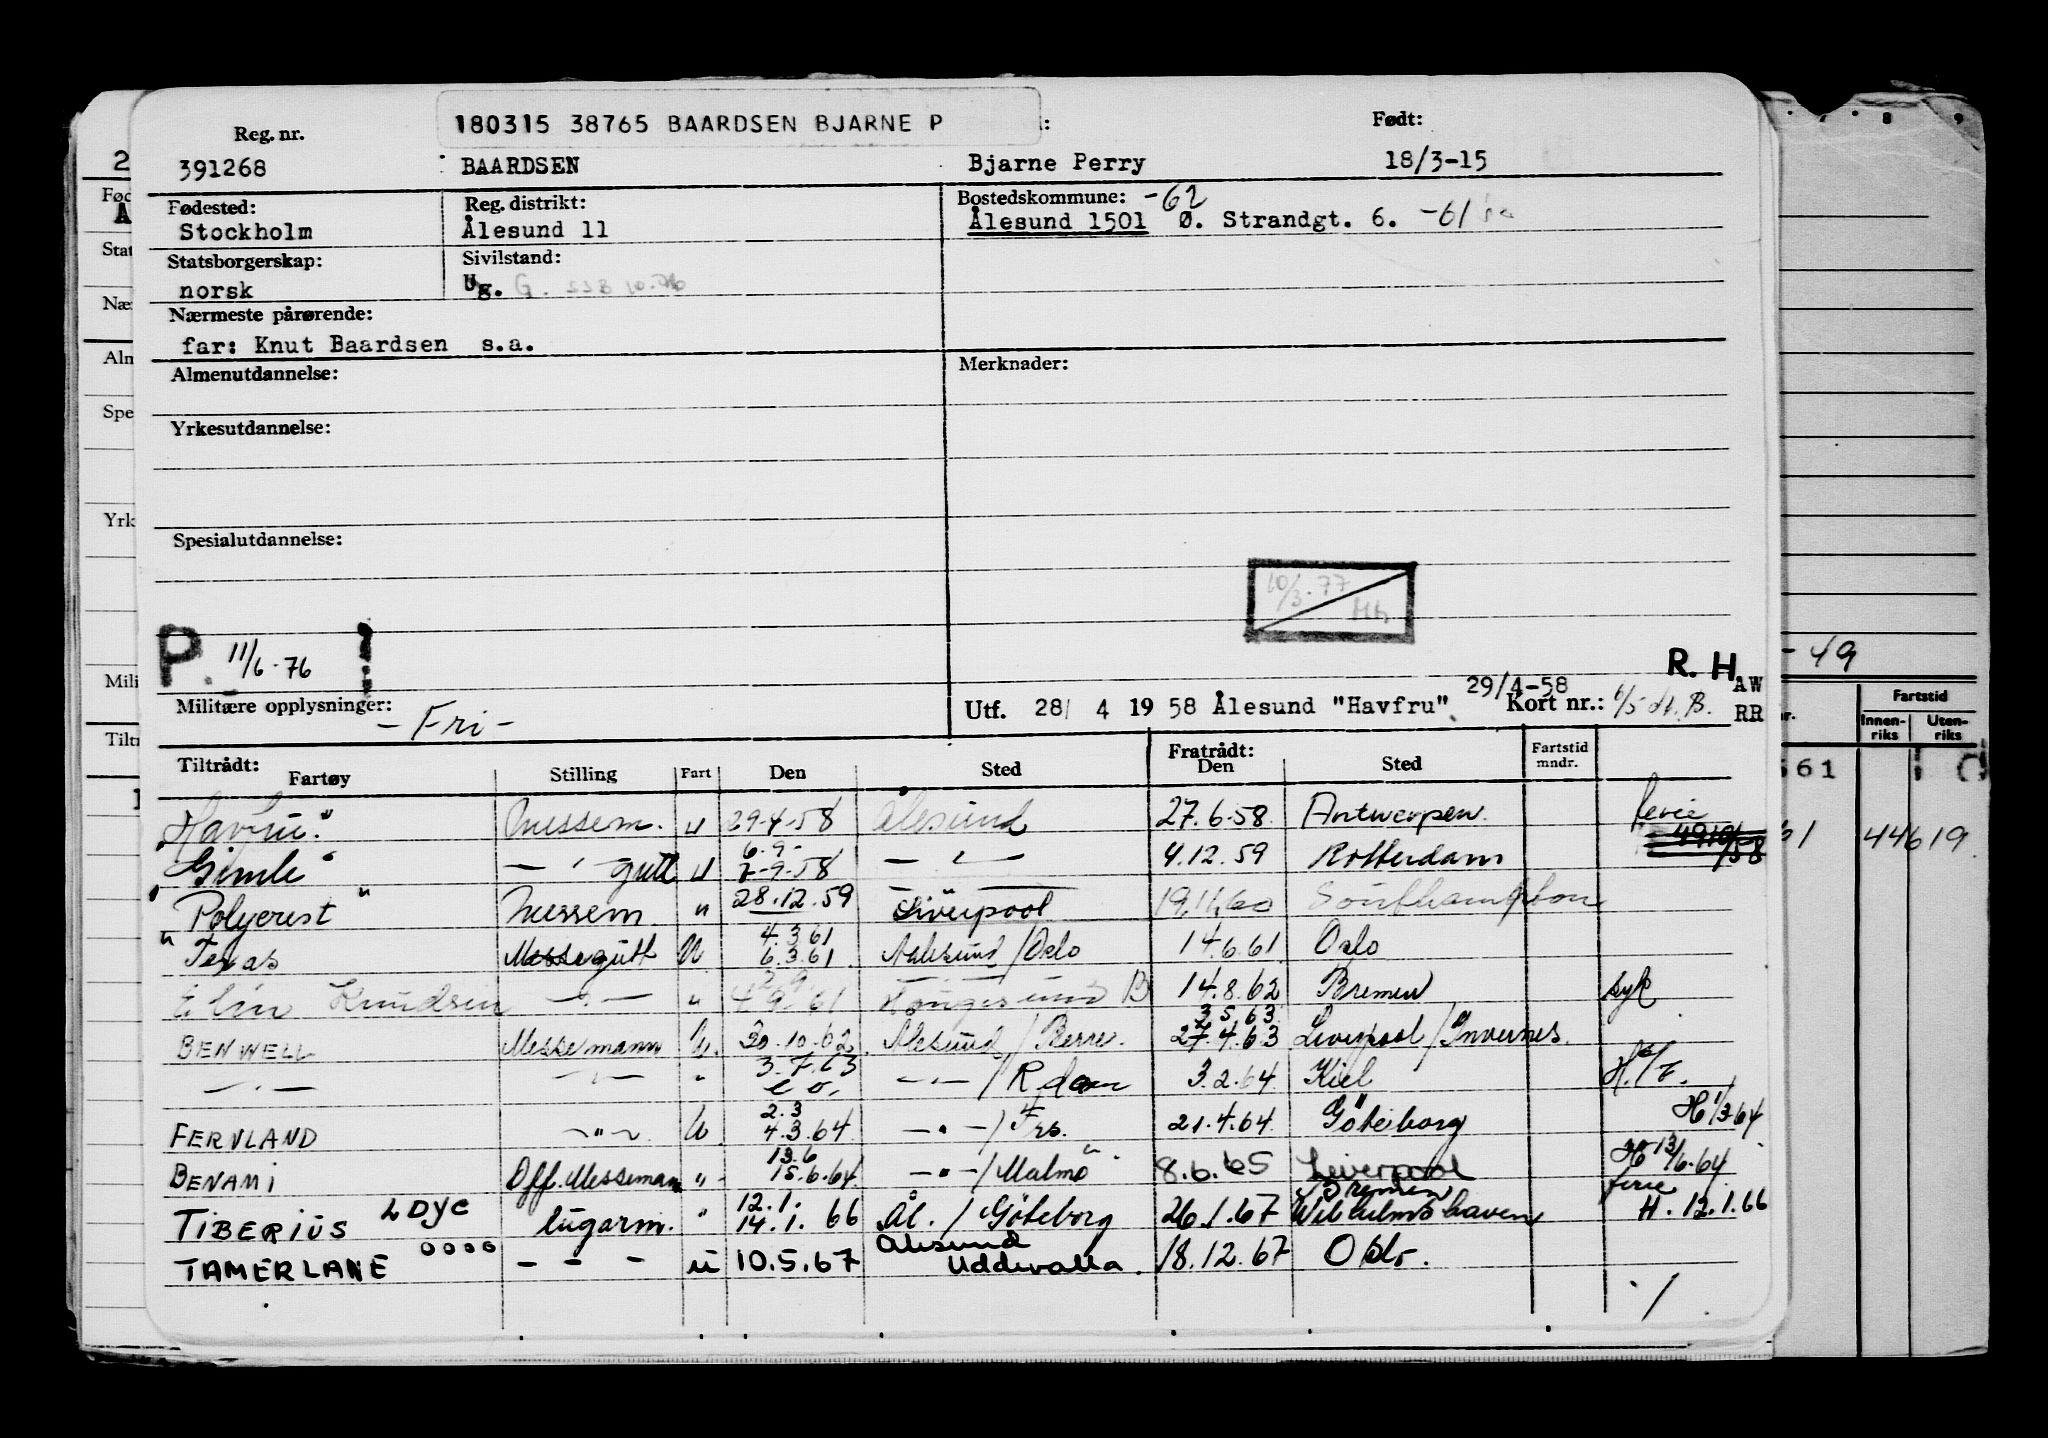 180315 38765 BAARDSEN BJARNE P
Reg. nr. Født:
391268 BAARDSEN Bjarne Perry 18/3-15
Fødested: Reg. distrikt: Bostedskommune: -62
Stockholm Ålesund 11 Ålesund 1501 Ø. Strandgt. 6. -61
Statsborgerskap: Sivilstand:
norsk Ug. G. SSB 10.76
Nærmeste pårørende:
far: Knut Baardsen s.a.
Almenutdannelse: Merknader:
Yrkesutdannelse:
Spesialutdannelse:
10/3.77
P. 11/6-76
R. H.
AW
RR
Militære opplysninger: - Fri -
Utf. 28/ 4 19 58 Ålesund "Havfru" 29/4-58 Kort nr.:
Tiltrådt: Fratrådt:
Fartøy Stilling Fart Den Sted Den Sted Fartstid mndr.
"Havfru" Messem. U 29-4-58 Ålesund 27.6-58. Antwerpen. ferie
"Gimle" — " — gutt U 6.9- 7-9-58 — " — 4.12.59 Rotterdam
"Polycrest" Messem. " 28.12.59 Liverpool 19.11.60 Southampton
"Texas Messegutt U 4.3.61 6.3.61 Aalesund/Oslo 14.6.61 Oslo
Elin Knudsen — " — " 2.9 4.9.61 Haugesund B 14.8.62 Bremen syk
BENWELL Messemann U. 30.10.62 Alesund/Berre. 3.5.63 27.4.63 Liverpool/Invernes.
— " — — " — " 3.7.63 — " —/R.dam 3.2.64 Kiel H./F.
FERNLAND — " — U 2.3 4.3.64 — " —/Frs. 21.4.64 Göteborg H 1/3-64
BENAMI Off. Messemann " 13.6 15.6.64 — " —/Malmö 8.6.65 Liverpool H 13/6.64
ferie
TIBERIUS LDYC lugarm. " 12.1. 14.1. 66 Ål. / Göteborg 26.1.67 Bremen Wilhelmshaven H. 12.1.66
TAMERLANE - - - u 10.5.67 Alesund Uddevalla. 18.12.67 Oslo.
- 49
Fartstid
Innen- riks Uten- riks
561
61 44619